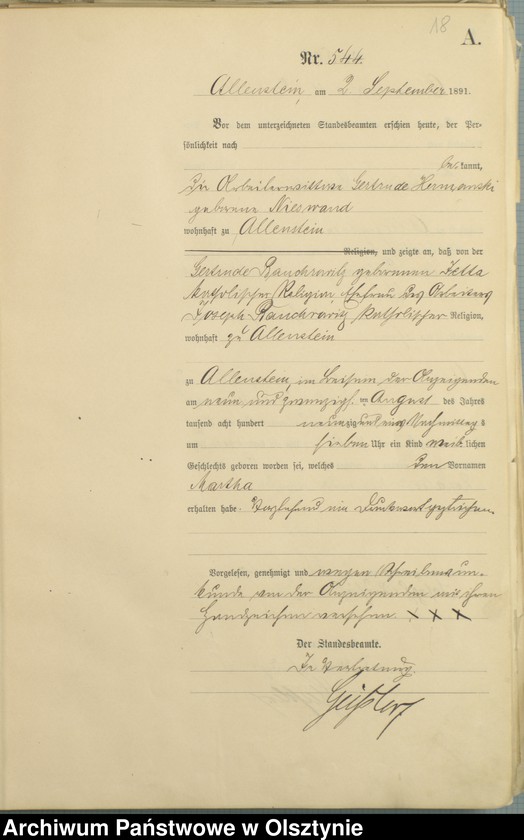 18
A.
Nr. 544
Allenstein, am 2 September 1891.
Vor dem unterzeichneten Standesbeamten erschien heute, der Per-
sönlichkeit nach
be kannt,
die Arbeiterwittwe Gertrude Hermanski
geborene Nieswand
wohnhaft zu Allenstein
Religion, und zeigte an, daß von der
Gertrude Rauchrowitz geborenen Zetta
katholischer Religion, Ehefrau des Arbeiters
Joseph Rauchrowitz katholischer Religion,
wohnhaft zu Allenstein
zu Allenstein, im Beisein der Anzeigenden
am neun und zwanzigst en August des Jahres
tausend acht hundert neunzig und eins Nachmittags
um sieben Uhr ein Kind weib lichen
Geschlechts geboren worden sei, welches den Vornamen
Martha
erhalten habe. Vorstehend ein Druckwort gestrichen.
Vorgelesen, genehmigt und wegen Schreibensun-
kunde von der Anzeigenden mit ihren
Handzeichen versehen XXX
Der Standesbeamte.
In Vertretung.
Archiwum Państwowe w Olsztynie